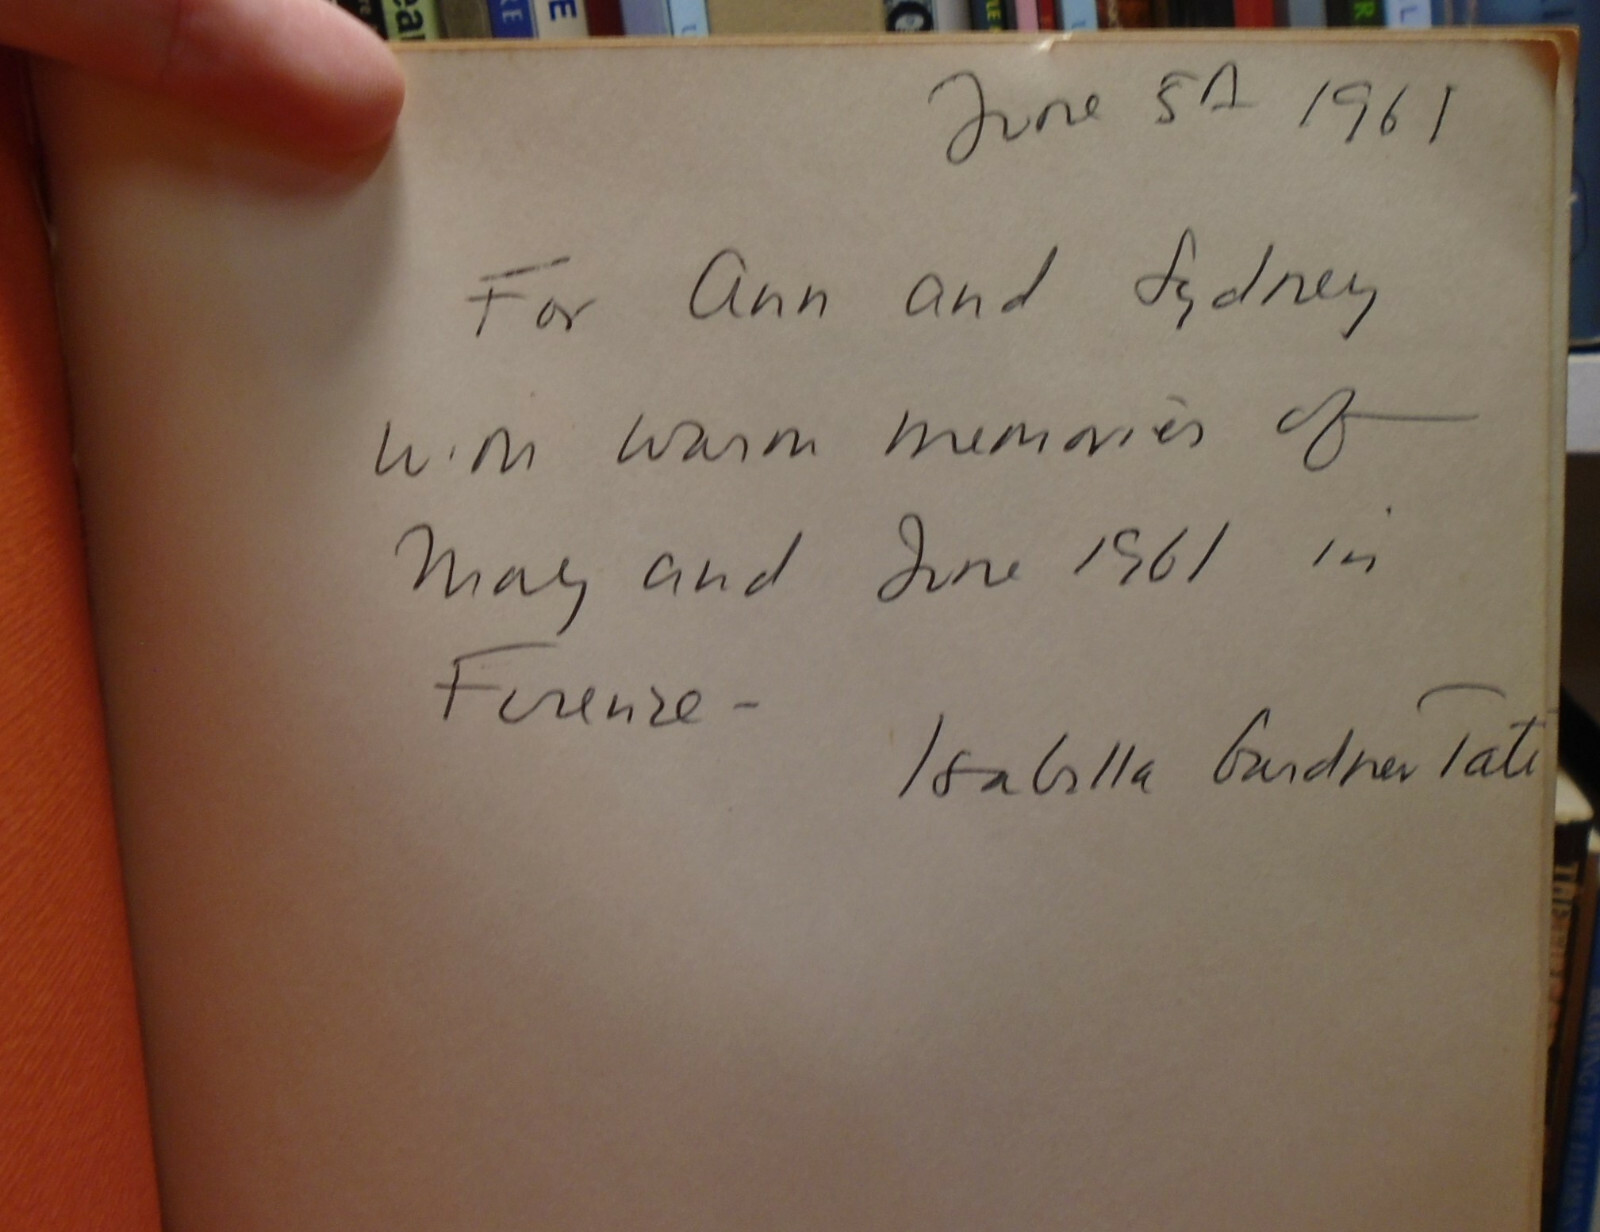 June 5th 1961
For Ann and Sydney
with warm memories of
May and June 1961 in
Firenze -
Isabella Gardner Tate